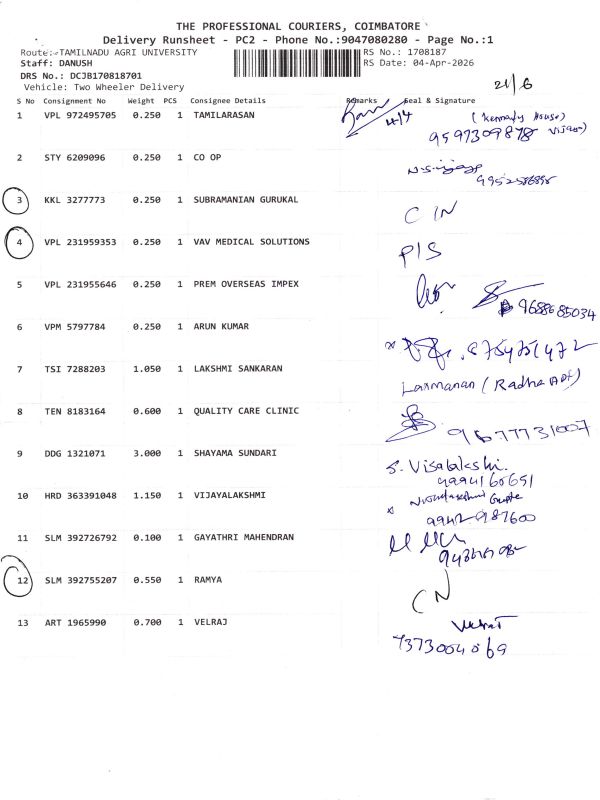 THE PROFESSIONAL COURIERS, COIMBATORE
Delivery Runsheet - PC2 - Phone No.:9047080280 - Page No.:1
Route:-TAMILNADU AGRI UNIVERSITY
RS No.: 1708187
Staff: DANUSH
RS Date: 04-Apr-2026
DRS No.: DCJB170818701
Vehicle: Two Wheeler Delivery
21/6
S No Consignment No Weight PCS Consignee Details Remarks Seal & Signature
1 VPL 972495705 0.250 1 TAMILARASAN 4/4 (Kennady House)
9597309878
2 STY 6209096 0.250 1 CO OP
3 KKL 3277773 0.250 1 SUBRAMANIAN GURUKAL C IN
4 VPL 231959353 0.250 1 VAV MEDICAL SOLUTIONS P/S
5 VPL 231955646 0.250 1 PREM OVERSEAS IMPEX
9688685034
6 VPM 5797784 0.250 1 ARUN KUMAR
7 TSI 7288203 1.050 1 LAKSHMI SANKARAN Laxmanan (Radha
8 TEN 8183164 0.600 1 QUALITY CARE CLINIC
9677731007
9 DDG 1321071 3.000 1 SHAYAMA SUNDARI S. Visalakshi.
9994160651
10 HRD 363391048 1.150 1 VIJAYALAKSHMI Gupte
9942987600
11 SLM 392726792 0.100 1 GAYATHRI MAHENDRAN
12 SLM 392755207 0.550 1 RAMYA CN
13 ART 1965990 0.700 1 VELRAJ Velraj
7373004069